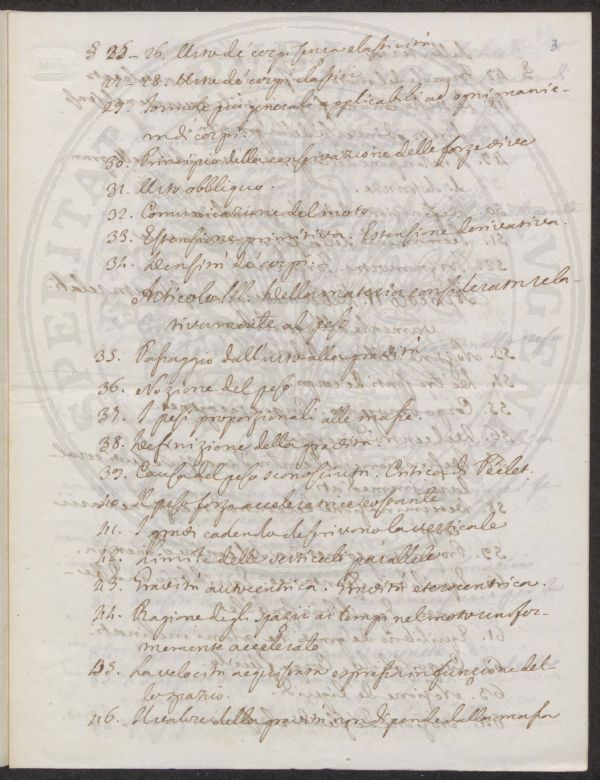 3
§ 25 - 26. Urto de' corpi senza elasticità
27 - 28. Urto de' corpi elastici
29. Formole più generali applicabili ad ogni manie-
ra di corpi.
30. Principio della conservazione delle forze vive
31. Urto obbliquo.
32. Comunicazione del moto
33. Estensione primitiva. Estensione derivativa.
34. Densità de' corpi.
Articolo III. Della materia considerata rela-
tivamente al peso
35. Passaggio dall'urto alla gravità
36. Nozione del peso
37. I pesi proporzionali alle masse.
38. Definizione della gravità.
39. Causa del peso sconosciuta. Critica di Péclet.
40. Il peso forza acceleratrice costante
41. I gravi cadendo descrivono la verticale
42. Limite delle verticali parallele
43. Gravità autocentrica. Gravità eterocentrica.
44. Ragione degli spazii ai tempi nel moto unifor-
memente accelerato
45. La velocità acquistata espressa in funzione del-
lo spazio.
46. Il valore della gravità non dipende dalla massa